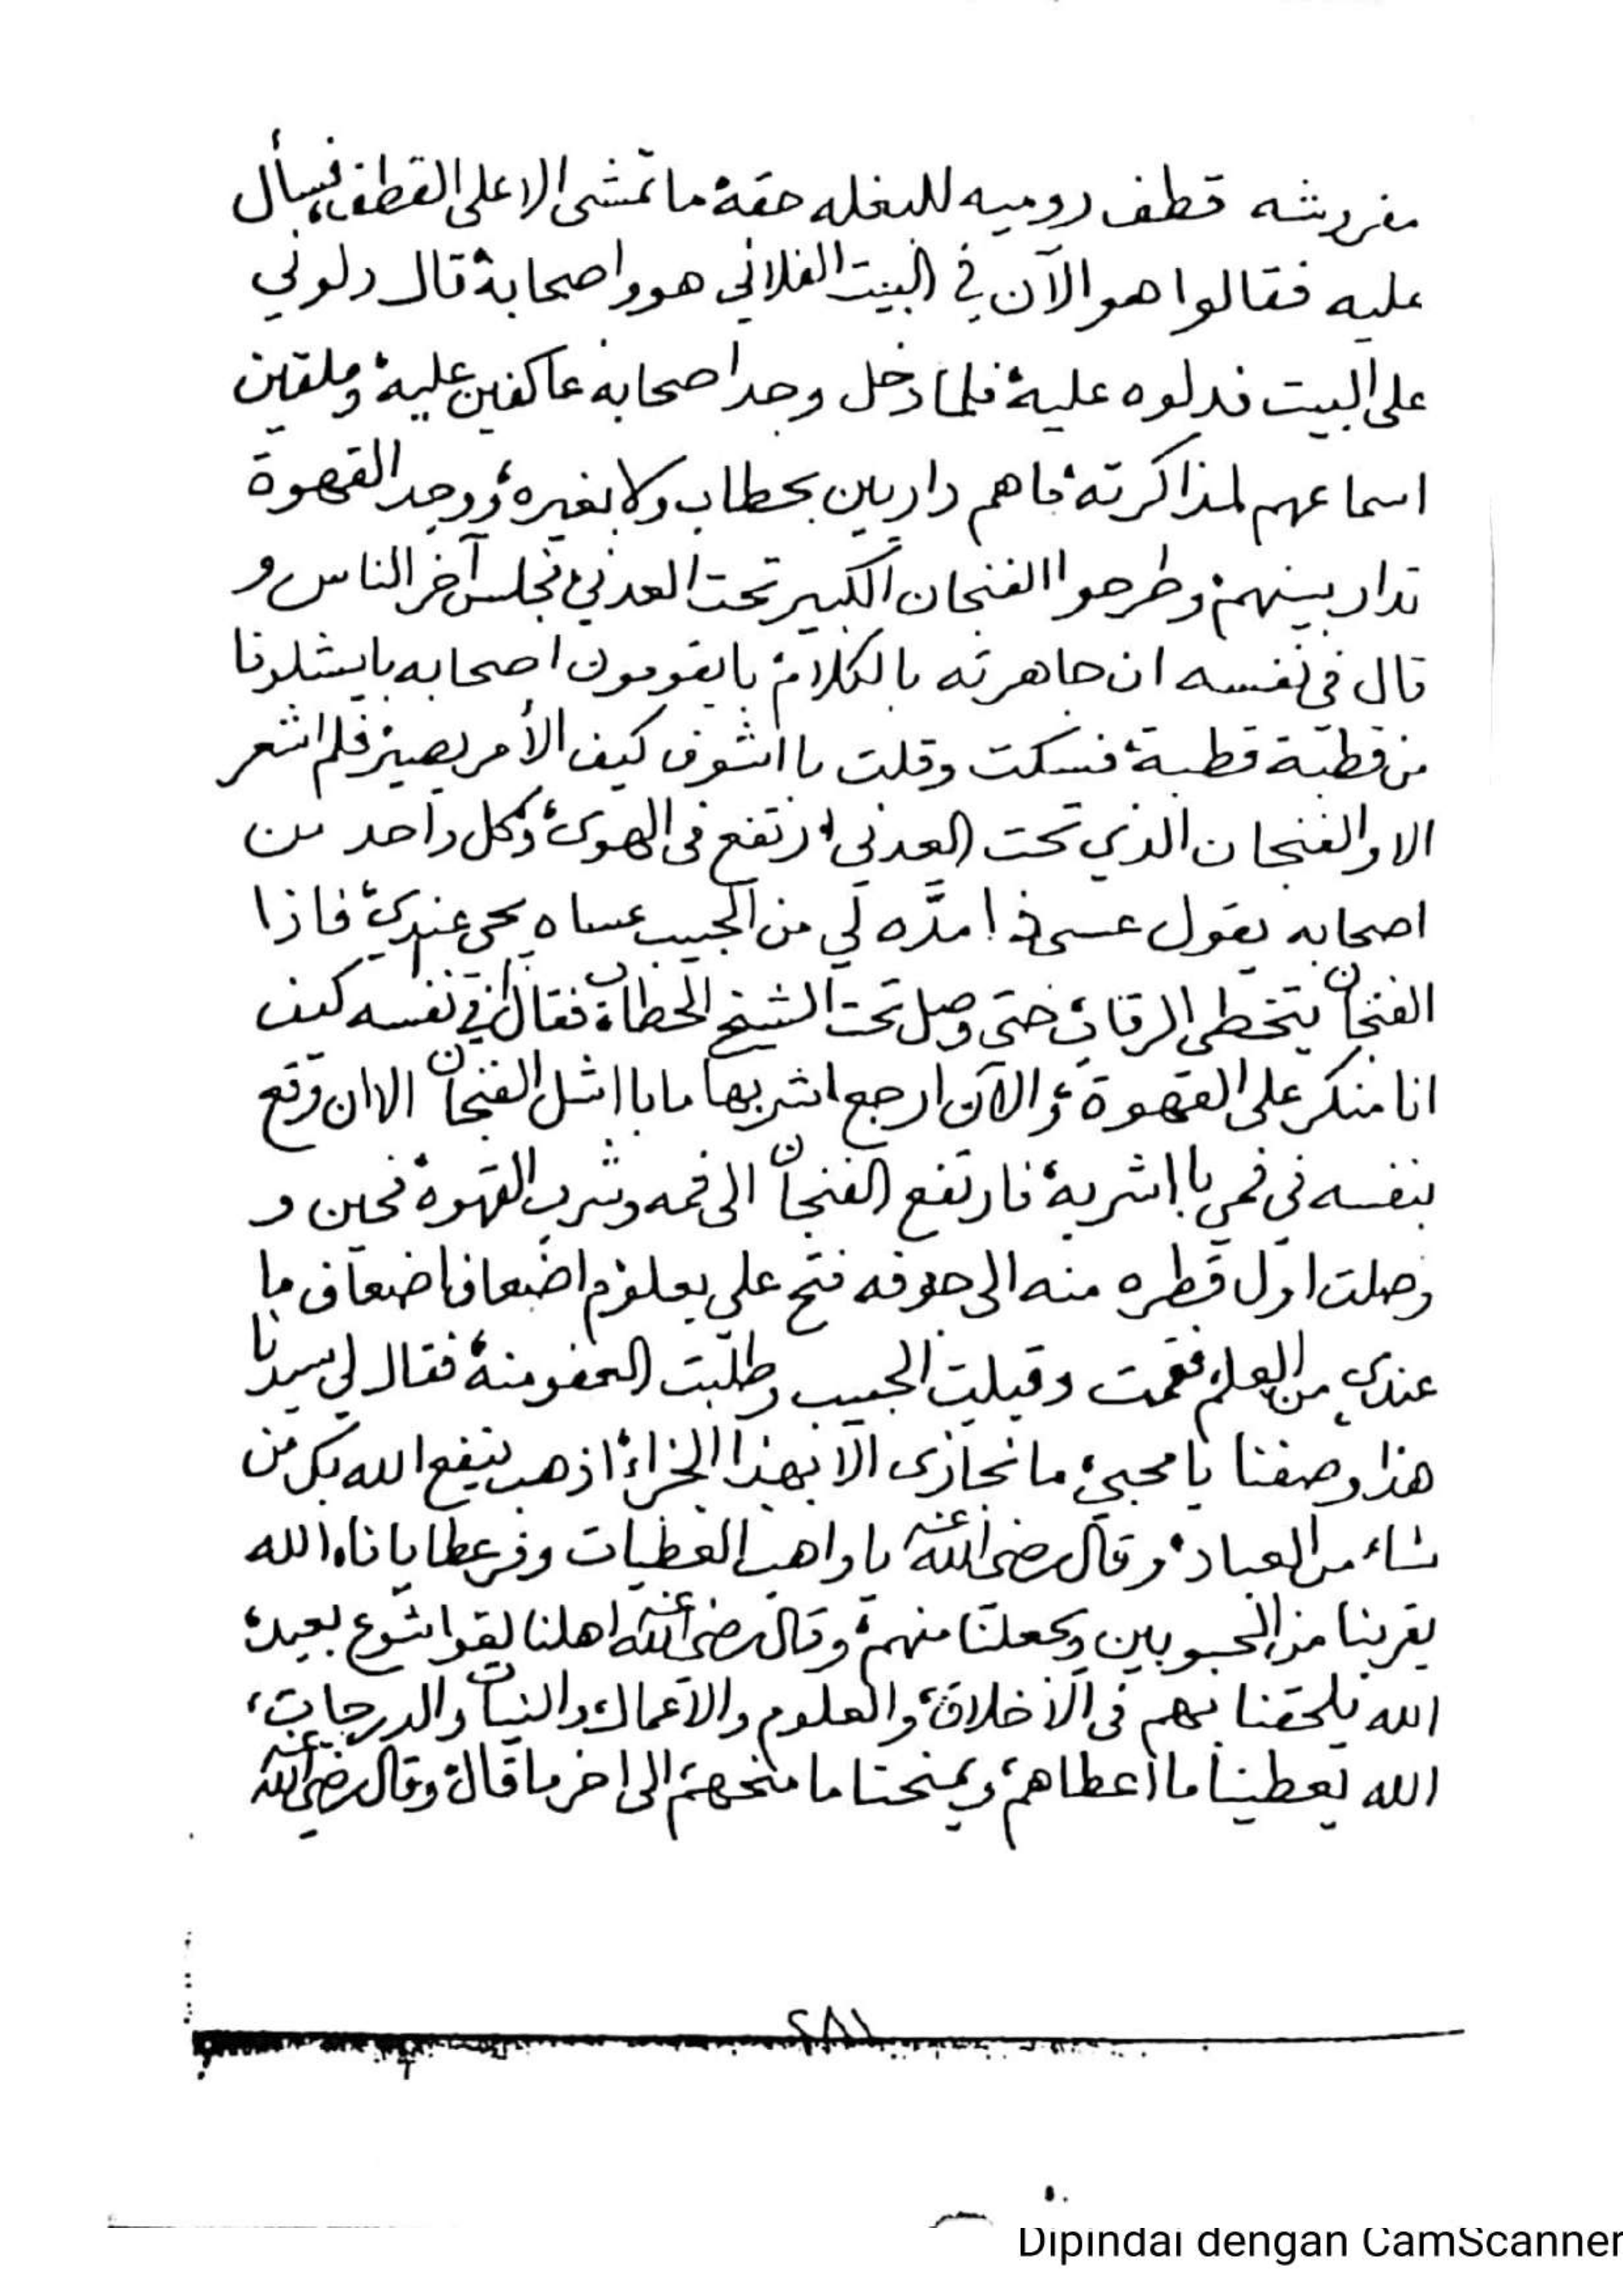 مفروشه قطف روميه للبغله حقه ما تمشى الا على القطف، فسأل
عليه فقالوا هو الآن في البيت الفلاني هو واصحابه قال دلوني
على البيت فدلوه عليه فلما دخل وجد اصحابه عاكفين عليه وملقين
اسماعهم لمذاكرته، ماهم داريين بحطاب ولا بغيره، ووجد القهوة
تدار بينهم، وطرحوا الفنجان الكبير تحت العدني فجلس آخر الناس و
قال في نفسه ان جاهرته بالكلام، بايقومون اصحابه بايشلونا
من قطبة قطبة، فسكت وقلت با اشوف كيف الأمر يصير فلم اشعر
الا والفنجان الذي تحت العدني ارتفع في الهوى، وكل واحد من
اصحابه يقول عسى ذا مدّه لي من الحبيب عساه يجي عندي، فاذا
الفنجان يتخطى الرقاب حتى وصل تحت الشيخ الحطاب، فقال في نفسه كيف
انا منكر على القهوة، والآن ارجع اشربها ما با اشل الفنجان الا ان وقع
بنفسه في فمي با اشربه، فارتفع الفنجان الى فمه وشرب القهوة فحين و
وصلت اول قطره منه الى جوفه فتح علي بعلوم اضعاف اضعاف ما
عندي من العلم، فقمت وقبلت الحبيب وطلبت العفو منه، فقال لي سيدنا
هذا وصفنا يا محبي، ما نجازى الا بهذا الجزاء، اذهب ينفع الله بك من
شاء من العباد، وقال رضي الله عنه يا واهب العطيات وفر عطايانا، الله
يقربنا من المحبوبين ويجعلنا منهم، وقال رضي الله عنه اهلنا لقوا شوع بعيد،
الله يلحقنا بهم في الأخلاق، والعلوم والأعمال والنيات والدرجات،
الله يعطينا ما أعطاهم، ويمنحنا ما منحهم، الى اخر ما قال، وقال رضي الله عنه
٢٨١
Dipindai dengan CamScanner